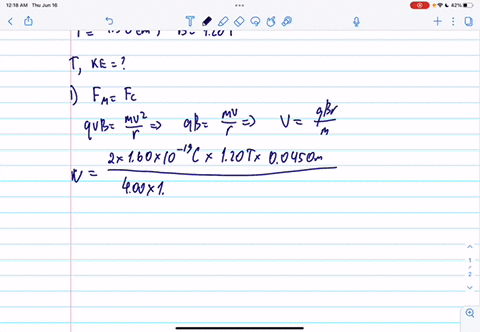 12:18 AM Thu Jun 16
42%
T, KE = ?
1) F_M = F_C
qvB = mv²/r => qB = mv/r => V = qBr/m
v = 2 x 1.60 x 10^-19 C x 1.20T x 0.0450m / 4.00 x 1.
1
2